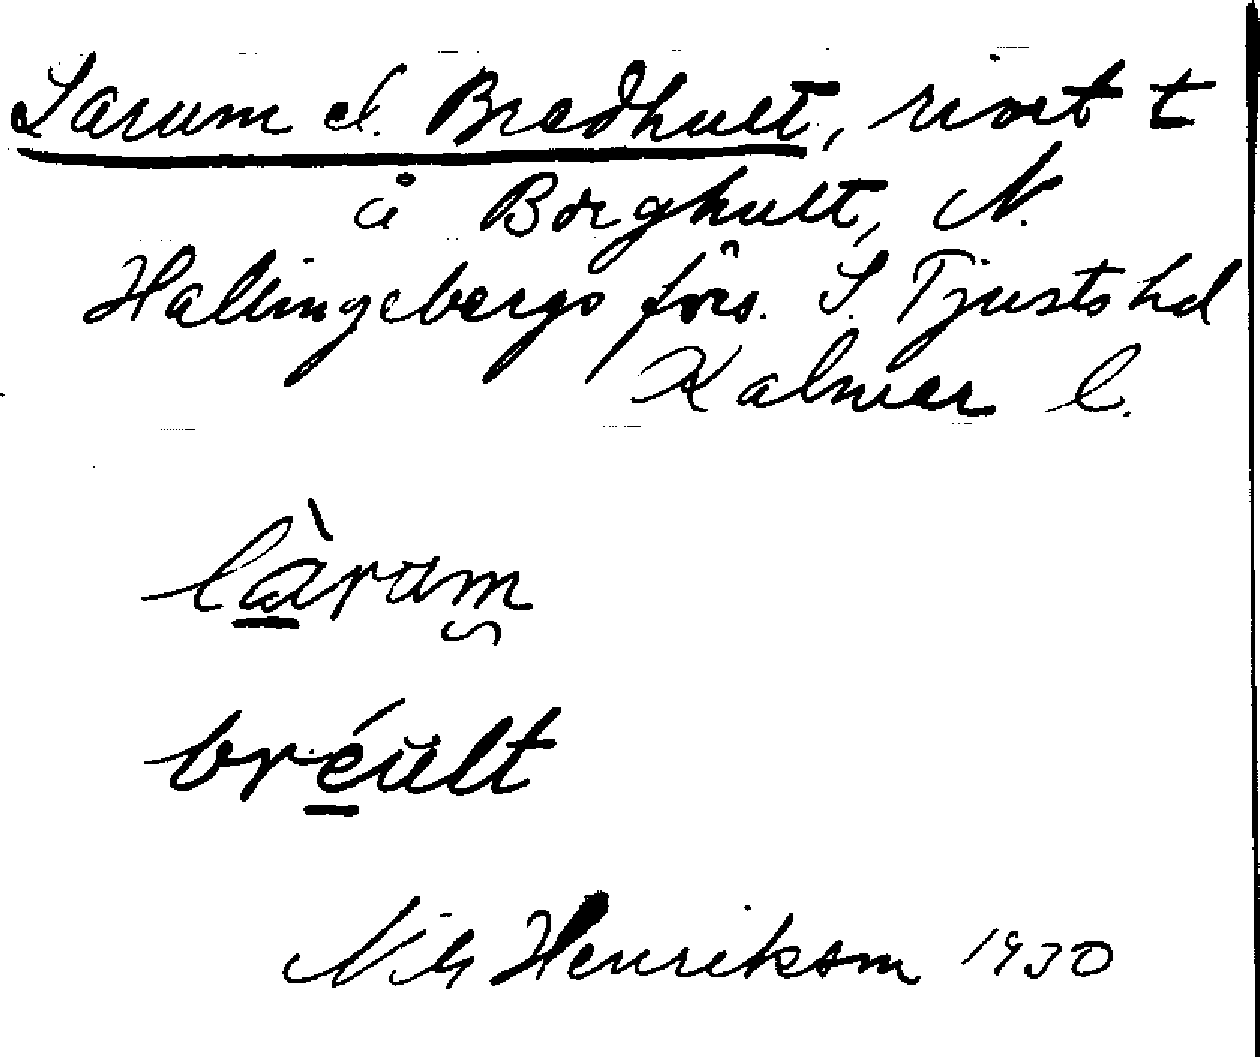 Larum el. Bredhult, rivet t
å Borghult, N.
Hallingebergs förs. S. Tjusts hd
Kalmar l.
làrum
bréult
Nils Henrikson 1930